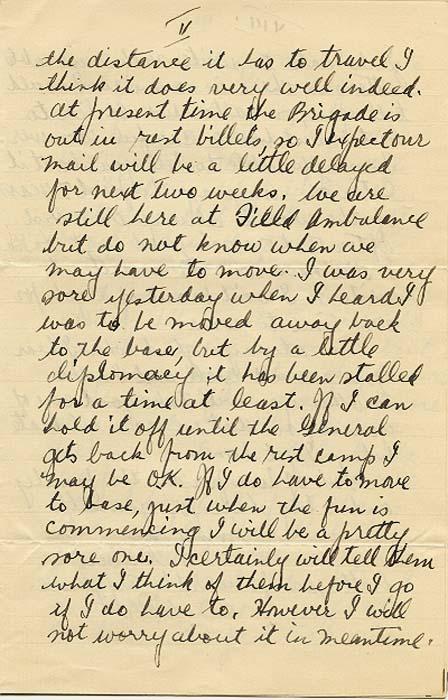 V
the distance it has to travel I
think it does very well indeed.
At present time the Brigade is
out in rest billets, so I expect our
mail will be a little delayed
for next two weeks. We are
still here at Field Ambulance
but do not know when we
may have to move. I was very
sore yesterday when I heard I
was to be moved away back
to the base, but by a little
diplomacy it has been stalled
for a time at least. If I can
hold it off until the General
gets back from the rest camp I
may be OK. If I do have to move
to base, just when the fun is
commencing I will be a pretty
sore one. I certainly will tell them
what I think of them before I go
if I do have to. However I will
not worry about it in meantime.